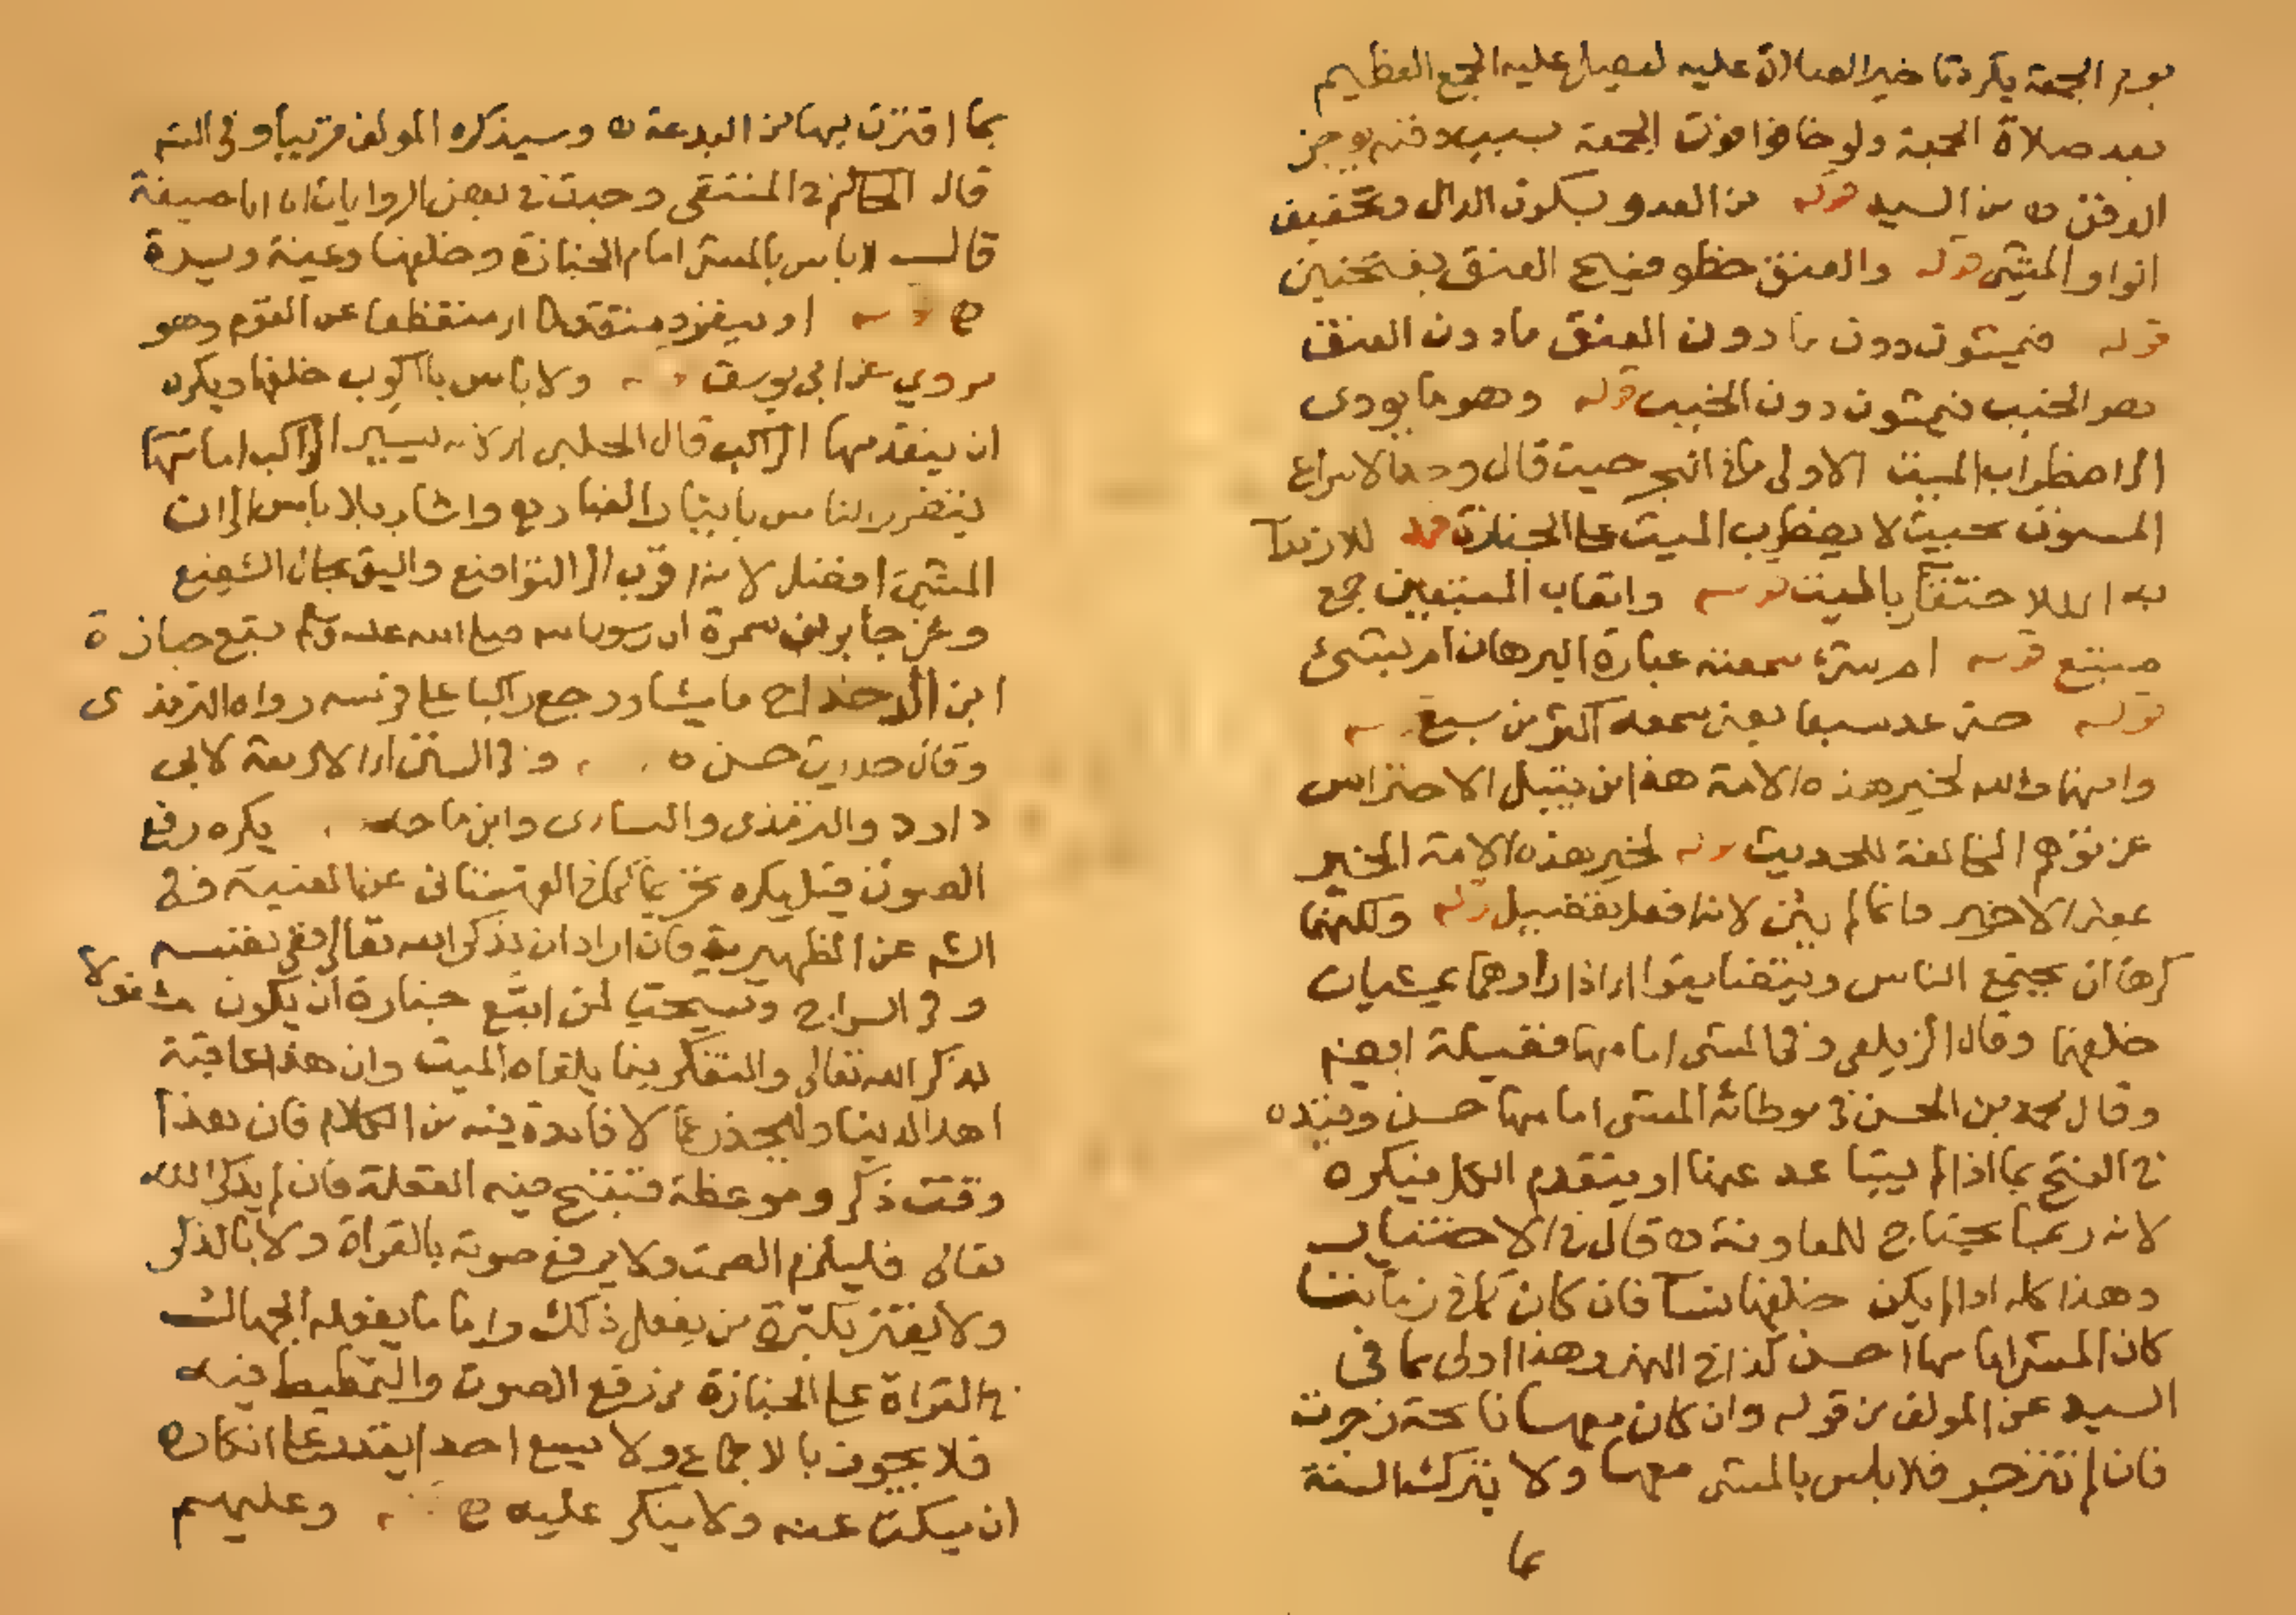 يوم الجمعة يكره تاخير الصلاة عليه ليصلى عليه الجمع العظيم
بعد صلاة الجمعة ولو خافوا فوت الجمعة بسبب دفنه يوخر
الدفن ه من السيد قوله من العدو بسكون الدال وتخفيف
الواو المشى قوله والعنق خطو فسيح العنق بفتحتين
قوله فيمشون دون ما دون العنق مادون العنق
هو الخبب فيمشون دون الخبب قوله وهو ما يودى
الى اضطراب الميت الاولى ما فى البحر حيث قال وحد الاسراع
المسنون بحيث لا يضطرب الميت على الجنازة قوله
به بالميت قوله واتعاب المتبعين جمع
متبع قوله سمعته عبارة البرهان ام بشئ
قوله حتى عد سبعا يعنى سمعه اكثر من سبع
وانهما والله لخير هذه الامة هذا من قبيل الاحتراس
عن توهم المخالفة للحديث قوله لخير هذه الامة الخير
الاخير لانه افعل تفضيل قوله ولكنهما
كرها ان يجتمع الناس ويتضايقوا اى اذا راوهما يمشيان
خلفها وقال الزيلعى وفى المشى امامها فضيلة ايضا
وقال محمد بن الحسن فى موطائه المشى امامها حسن وقيده
فى الفتح بما اذا لم يتباعد عنها او يتقدم الكل فيكره
لانه ربما يحتاج للمعاونة ه قال فى الاختيار
وهذا كله اذا لم يكن خلفها نساء فان كان كما فى زماننا
كان المشى امامها احسن كذا فى النهر وهذا اولى مما فى
السيد عن المولف من قوله وان كان معها نائحة زجرت
فان لم تنزجر فلا باس بالمشى معها ولا يترك السنة
بما
بما اقترن بها من البدعة ه وسيذكره المولف قريبا وفى الشر
قال الحاكم فى المنتقى وجدت فى بعض الروايات ان ابا حنيفة
قال لا باس بالمشى امام الجنازة وخلفها وعينة ويسرة
ه او ينفرد متقدما او منقطعا عن القوم وهو
مروي عن ابى يوسف ولا باس بالركوب خلفها ويكره
ان يتقدمها الراكب قال الحلبى اى لانه يسير الراكب امامها
يتضرر الناس باثارة الغبار ه واشار بلا باس الى ان
المشى افضل لانه اقرب الى التواضع واليق بحال الشفيع
وعن جابر بن سمرة ان رسول الله صلى الله عليه وسلم تبع جنازة
ابن الدحداح ماشيا ورجع راكبا على فرسه رواه الترمذى
وقال حديث حسن ه وفى السنن اى الاربعة لابى
داود والترمذى والنساى وابن ماجه يكره رفع
الصوت قيل يكره تحريما كما فى القهستانى عن القنية وفى
الشر عن الظهيرية فان اراد ان يذكر الله تعالى ففى نفسه
وفى السراج ويستحب لمن اتبع جنازة ان يكون مشغولا
بذكر الله تعالى والتفكر بما يلقاه الميت وان هذا عاقبة
اهل الدنيا وليحذر عما لا فائدة فيه من الكلام فان هذا
وقت ذكر وموعظة فتقبح فيه الغفلة فان لم يذكر الله
تعالى فليلزم الصمت ولا يرفع صوته بالقراة ولا بالذكر
ولا يغتر بكثرة من يفعل ذلك واما ما يفعله الجهال
فى القراة على الجنازة من رفع الصوت والتمطيط فيه
فلا يجوز بالاجماع ولا يسع احد ايقدر على انكاره
ان يسكت عنه ولا ينكر عليه ه وعليهم